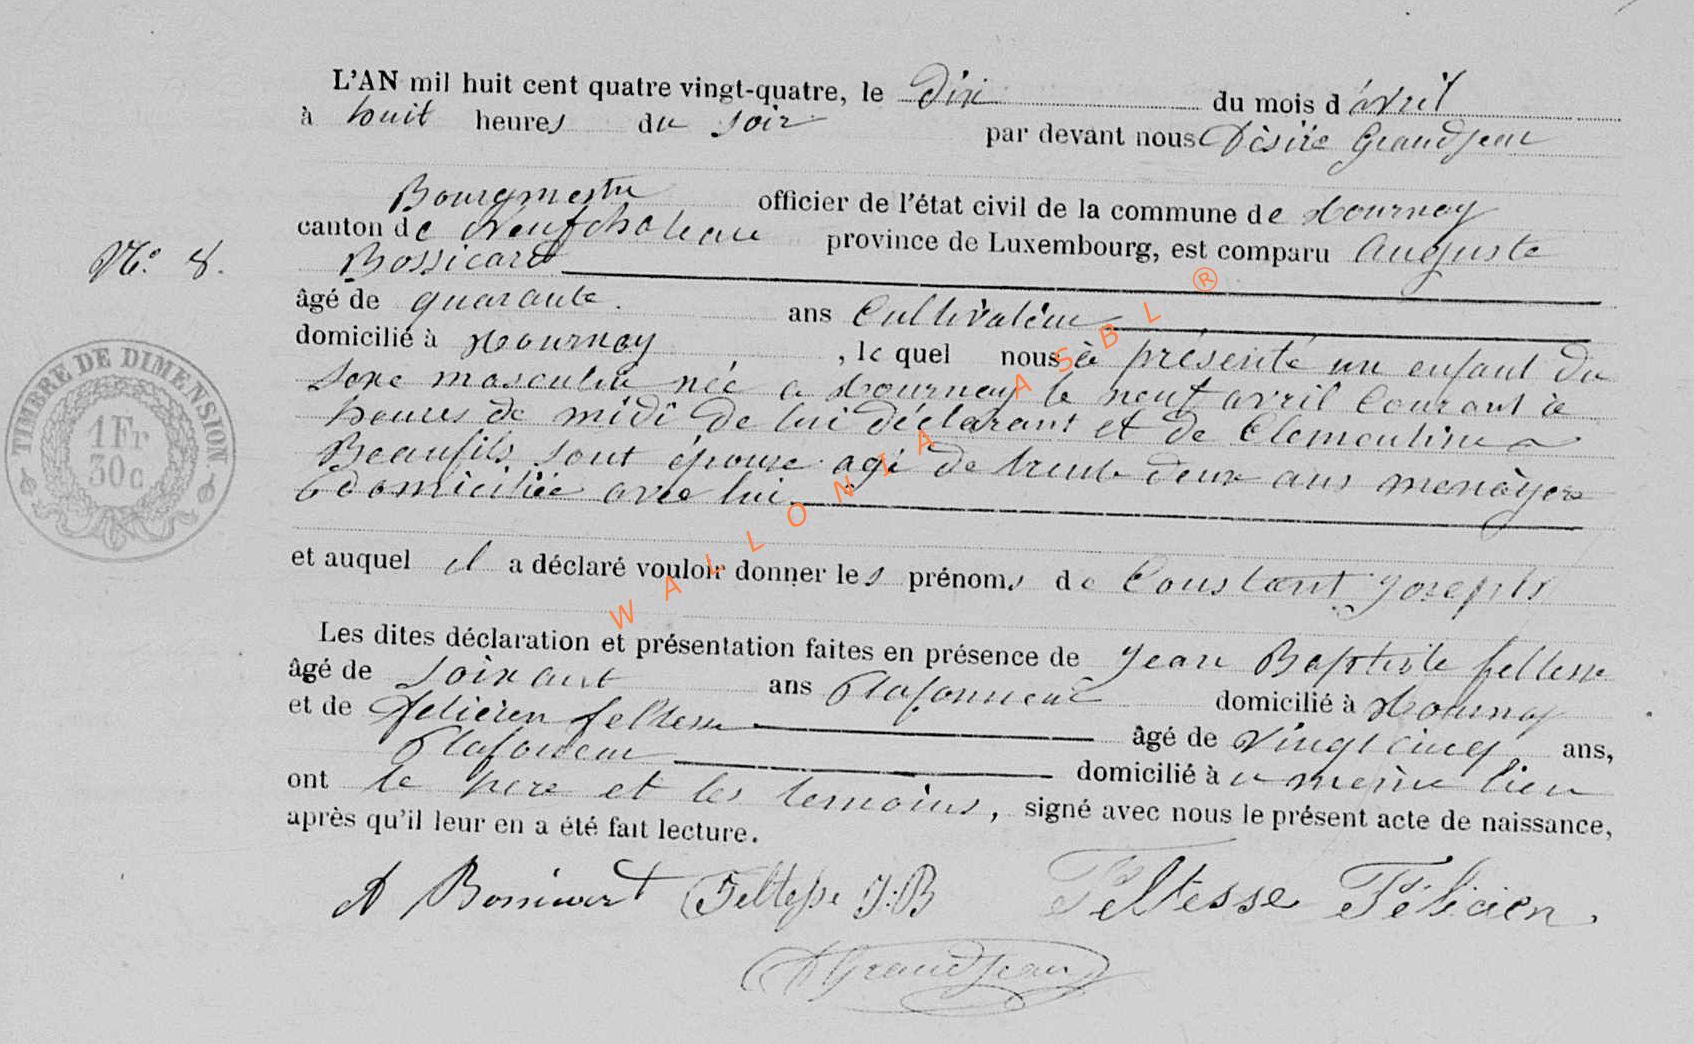 L'AN mil huit cent quatre vingt-quatre, le dix du mois d'avril
à huit heures du soir par devant nous Désiré Grandjean
Bourgmestre officier de l'état civil de la commune de Hournay
canton de Neufchateau province de Luxembourg, est comparu Auguste
Bossicard
N.o 8.
âgé de quarante ans Cultivateur
domicilié à Hournay, le quel nous à présenté un enfant du
sexe masculin née a Hournay le neuf avril Courant à
heures de midi de lui déclarant et de Clementine
Beaufils sout épouse agé de trente deux ans menagère
domiciliée avec lui
TIMBRE DE DIMENSION
1 Fr
30c
et auquel il a déclaré vouloir donner les prénoms de Constant Joseph
Les dites déclaration et présentation faites en présence de Jean Baptiste feltesse
âgé de soixant ans Plafonneur domicilié à Hournay
et de felicien feltesse âgé de vingt cinq ans,
Plafonneur domicilié à u même lieu
ont le père et les temoins, signé avec nous le présent acte de naissance,
après qu'il leur en a été fait lecture.
A Bossicart Feltesse J:B Feltesse Félicien.
D Grandjean
WALLONIA ASBL ®